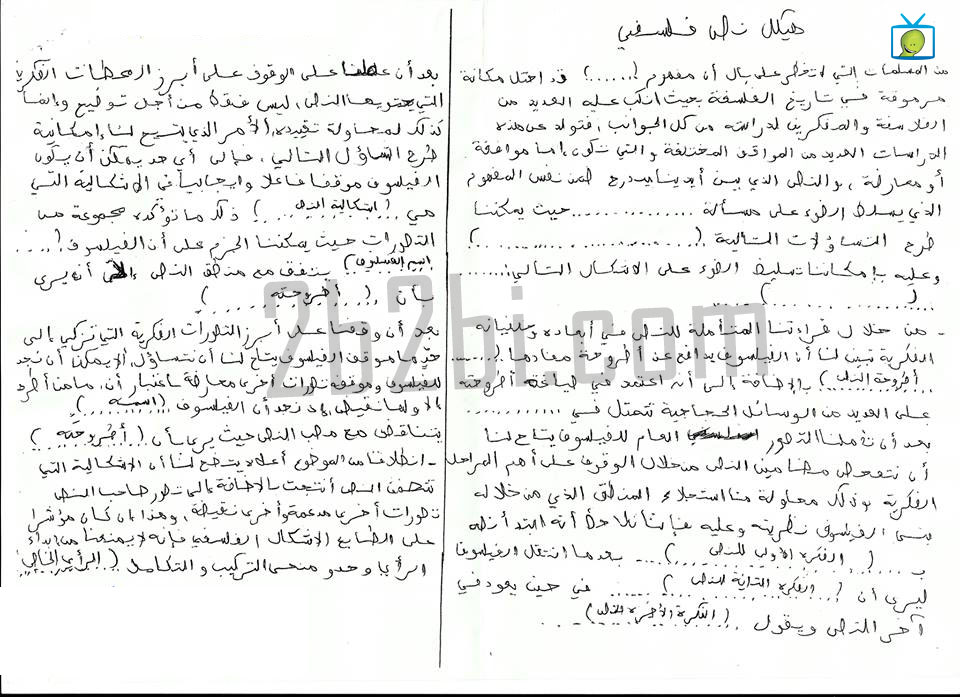 هيكل نص فلسفي
من المسلمات التي لا تخطر على بال أن مفهوم (......) قد احتل مكانة
مرموقة في تاريخ الفلسفة بحيث انكب عليه العديد من
الفلاسفة والمفكرين لدراسته من كل الجوانب ، فتولد عن هذه
الدراسات العديد من المواقف المختلفة والتي تكون إما موافقة
أو معارضة ، والنص الذي بين أيدينا يندرج ضمن نفس المفهوم
الذي يسلط الضوء على مسألة ............... حيث يمكننا
طرح التساؤلات التالية (.....................)
وعليه بإمكاننا تسليط الضوء على الاشكال التالي :.......
(....................)
- من خلال قراءتنا المتأملة للنص في أبعاده و
الفكرية تبين لنا أن الفيلسوف يدافع عن أطروحة مفادها (.......
أطروحة النص) بالإضافة إلى أنه اعتمد في صياغة أطروحته
على العديد من الوسائل الحجاجية تتمثل في ...............
بعد أن تأملنا التصور العام للفيلسوف يتاح لنا
أن نتفحص مضامين النص من خلال الوقوف على أهم المراحل
الفكرية وذلك محاولة منا استجلاء المنطق الذي من خلاله
بنى الفيلسوف نظريته وعليه فإننا نلاحظ أنه ابتدأ نصه
ب ....... (الفكرة الأولى للنص) .... بعدما انتقل الفيلسوف
ليرى أن (الفكرة الثانية للنص) ...... في حين يعود في
آخر النص ويقول ....... (الفكرة الأخيرة للنص)
بعد أن عملنا على الوقوف على أبرز المحطات الفكرية
التي يحتويها النص ، ليس فقط من أجل توضيح وإنما
كذلك لمحاولة تقييده ، الأمر الذي يتيح لنا إمكانية
طرح التساؤل التالي ، فإلى أي حد يمكن أن يكون
الفيلسوف موقفا فاعلا وإيجابيا في الاشكالية التي
هي .... (اشكالية النص) ذلك ما تؤكده مجموعة من
التصورات حيث يمكننا الجزم على أن الفيلسوف (......
اسم الفيلسوف) يتفق مع منطق النص أن يرى
بأن (...... أطروحته ......)
بعد أن وقفنا على أبرز التصورات الفكرية التي تزكي إلى
حد ما موقف الفيلسوف يتاح لنا أن نتساؤل ألا يمكننا أن نجد
للفيلسوف وموقفه تصورات أخرى معارضة باعتبار أن ، ما من أطروحة
إلا ولها نقيض ، إذ نجد أن الفيلسوف (اسمه .......)
يتناقض مع صاحب النص حيث يرى بأن (أطروحته ....)
- انطلاقا من الموضوع أعلاه يتضح لنا أن الاشكالية التي
تتضمن النص أنتجت بالاضافة إلى تصور صاحب النص
تصورات أخرى مدعمة وأخرى نقيضة ، وهذا إن كان مؤشرا
على الطابع الاشكال الفلسفي فإنه لا يمنعنا من إبداء
الرأي وحدو منحى التركيب والتكامل (الرأي الخاص)
2b2bi.com